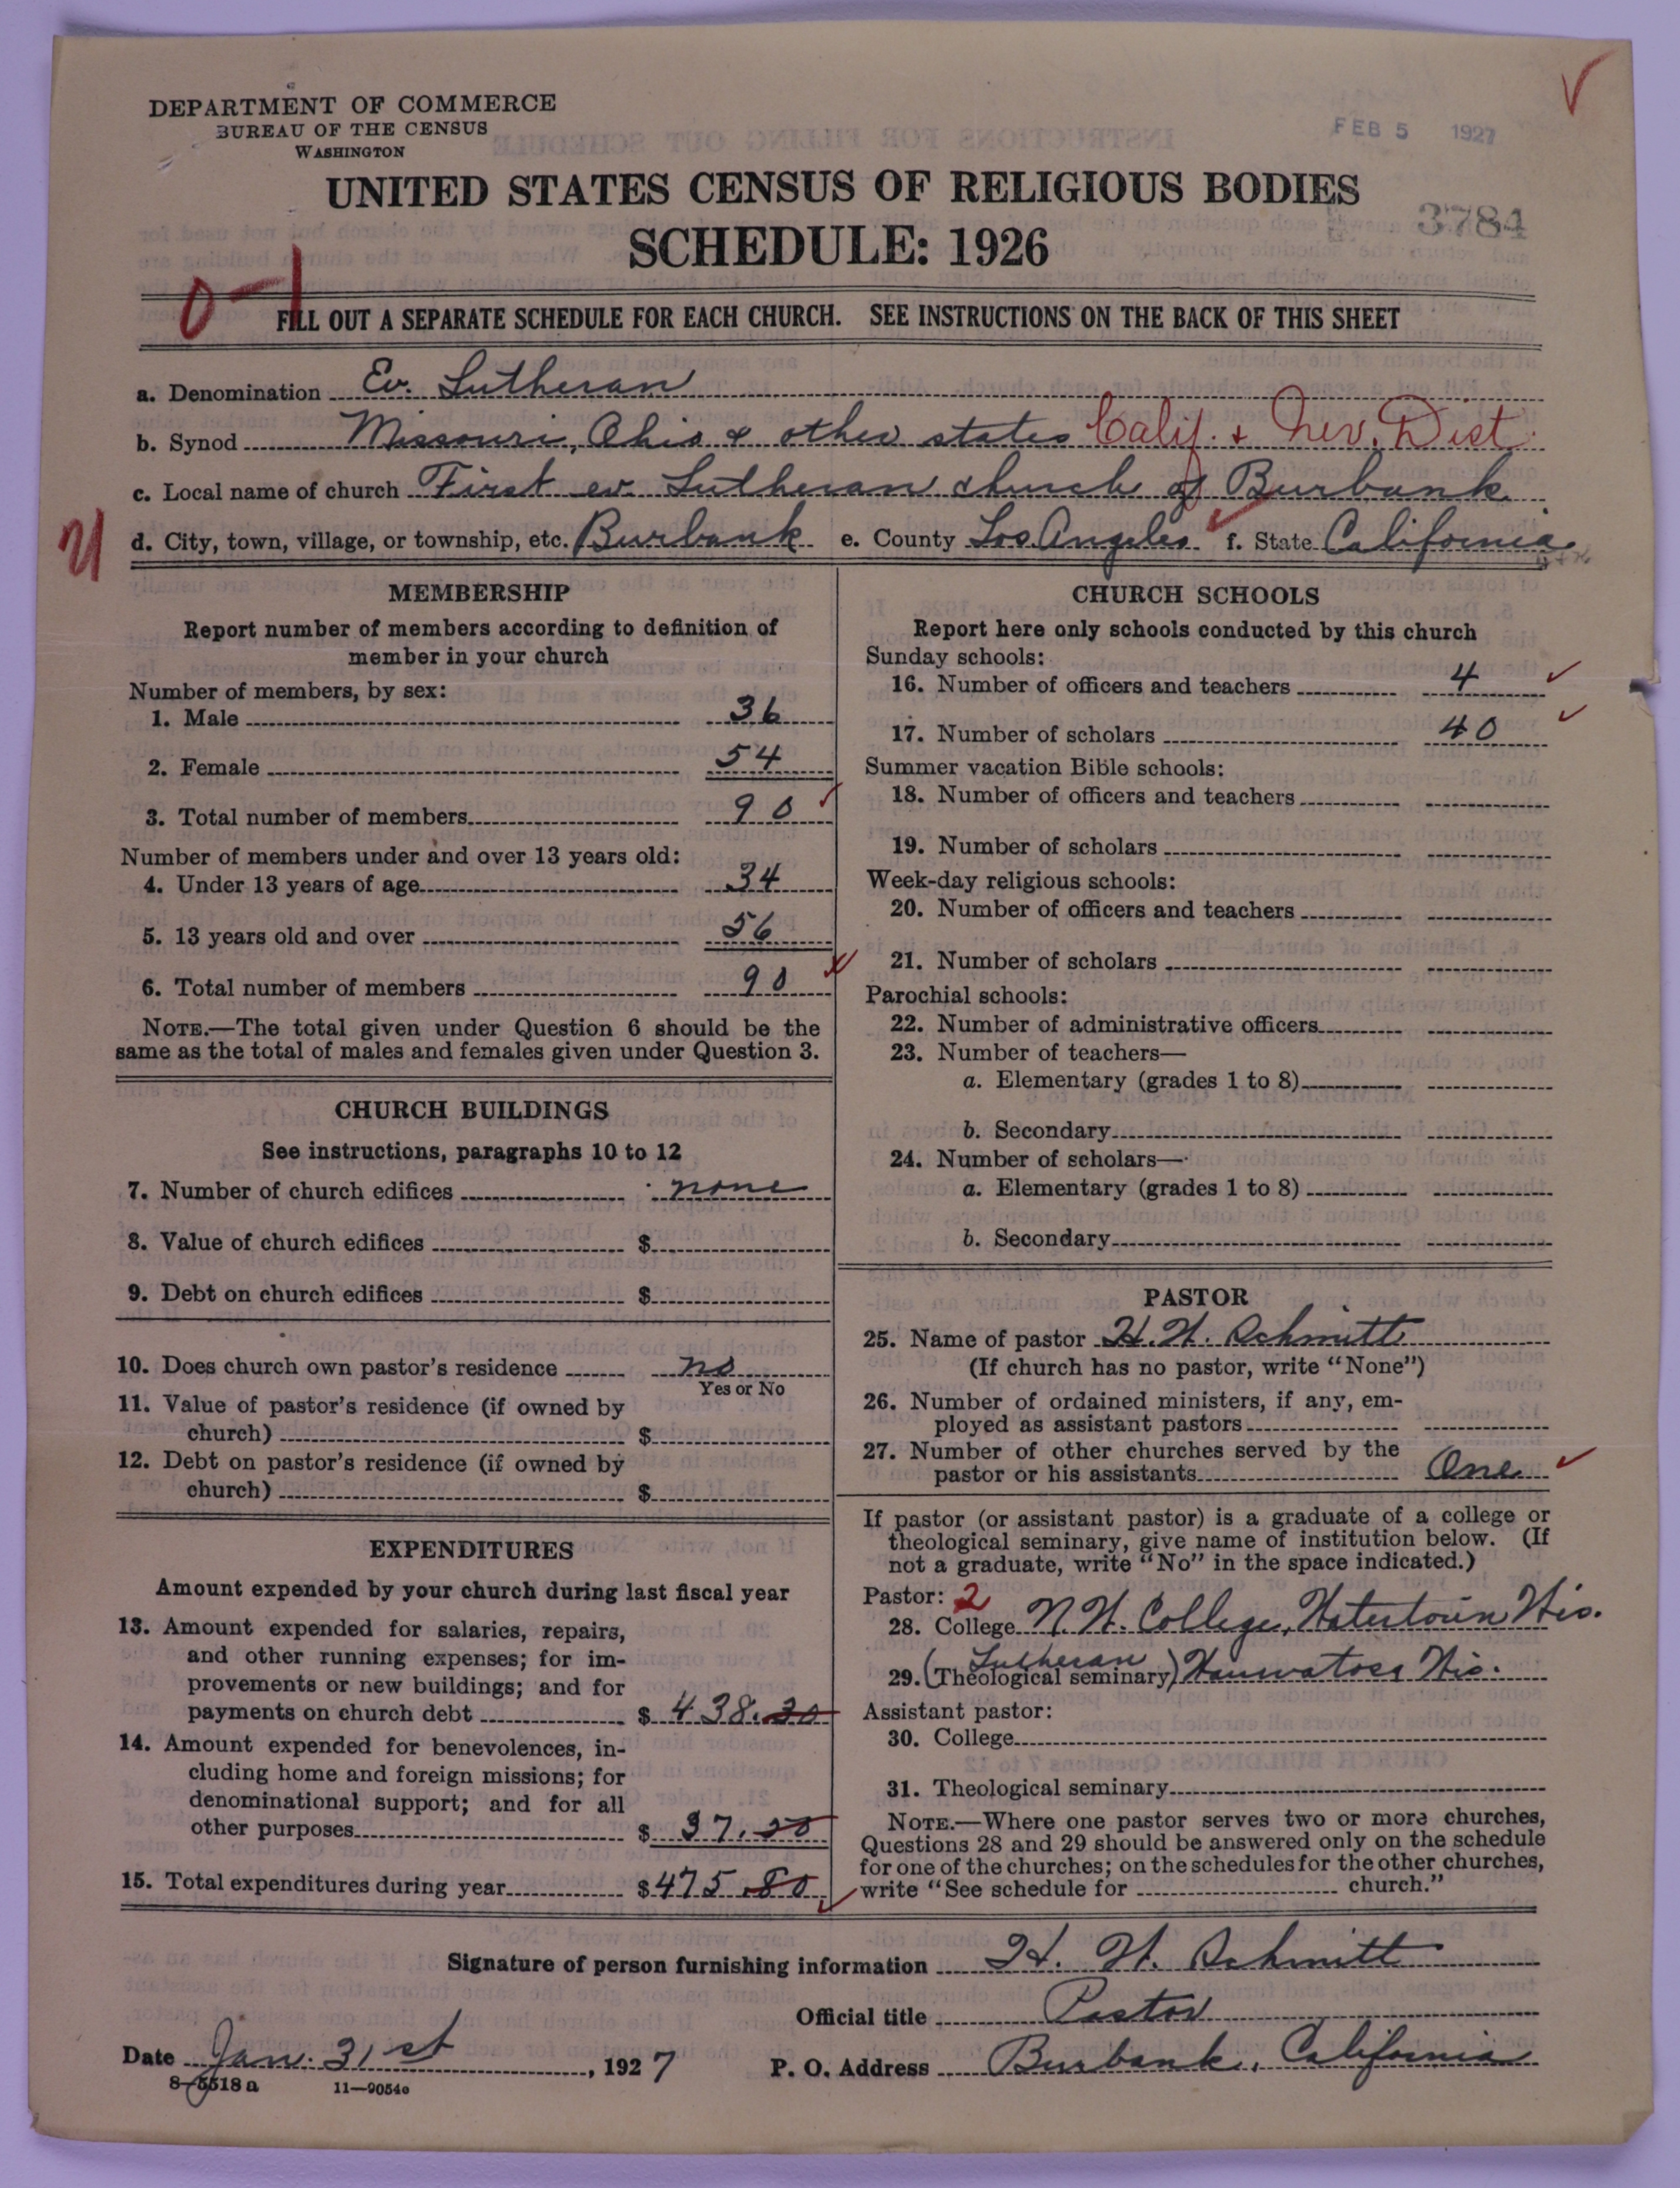 DEPARTMENT OF COMMERCE
BUREAU OF THE CENSUS
WASHINGTON
FEB 5 1927
UNITED STATES CENSUS OF RELIGIOUS BODIES
3784
SCHEDULE: 1926
FILL OUT A SEPARATE SCHEDULE FOR EACH CHURCH. SEE INSTRUCTIONS ON THE BACK OF THIS SHEET
a. Denomination Ev. Lutheran
b. Synod Missouri, Ohio & other states Calif. + Nev. Dist.
c. Local name of church First ev. Lutheran church of Burbank
d. City, town, village, or township, etc. Burbank e. County Los Angeles f. State California
MEMBERSHIP
Report number of members according to definition of
member in your church
Number of members, by sex:
1. Male 36
2. Female 54
3. Total number of members 90
Number of members under and over 13 years old:
4. Under 13 years of age 34
5. 13 years old and over 56
6. Total number of members 90
NOTE.—The total given under Question 6 should be the
same as the total of males and females given under Question 3.
CHURCH BUILDINGS
See instructions, paragraphs 10 to 12
7. Number of church edifices none
8. Value of church edifices $
9. Debt on church edifices $
10. Does church own pastor's residence no
Yes or No
11. Value of pastor's residence (if owned by
church) $
12. Debt on pastor's residence (if owned by
church) $
EXPENDITURES
Amount expended by your church during last fiscal year
13. Amount expended for salaries, repairs,
and other running expenses; for im-
provements or new buildings; and for
payments on church debt $ 438.30
14. Amount expended for benevolences, in-
cluding home and foreign missions; for
denominational support; and for all
other purposes $ 37.50
15. Total expenditures during year $ 475.80
CHURCH SCHOOLS
Report here only schools conducted by this church
Sunday schools:
16. Number of officers and teachers 4
17. Number of scholars 40
Summer vacation Bible schools:
18. Number of officers and teachers
19. Number of scholars
Week-day religious schools:
20. Number of officers and teachers
21. Number of scholars
Parochial schools:
22. Number of administrative officers
23. Number of teachers—
a. Elementary (grades 1 to 8)
b. Secondary
24. Number of scholars—
a. Elementary (grades 1 to 8)
b. Secondary
PASTOR
25. Name of pastor H. W. Schmitt
(If church has no pastor, write "None")
26. Number of ordained ministers, if any, em-
ployed as assistant pastors
27. Number of other churches served by the
pastor or his assistants One
If pastor (or assistant pastor) is a graduate of a college or
theological seminary, give name of institution below. (If
not a graduate, write "No" in the space indicated.)
Pastor: 2
28. College N. W. College, Watertown Wis.
Lutheran
29. (Theological seminary) Wauwatosa Wis.
Assistant pastor:
30. College
31. Theological seminary
NOTE.—Where one pastor serves two or more churches,
Questions 28 and 29 should be answered only on the schedule
for one of the churches; on the schedules for the other churches,
write "See schedule for church."
Signature of person furnishing information H. W. Schmitt
Official title Pastor
Date Jan. 31st, 1927 P. O. Address Burbank, California
8-5518a 11—9054c